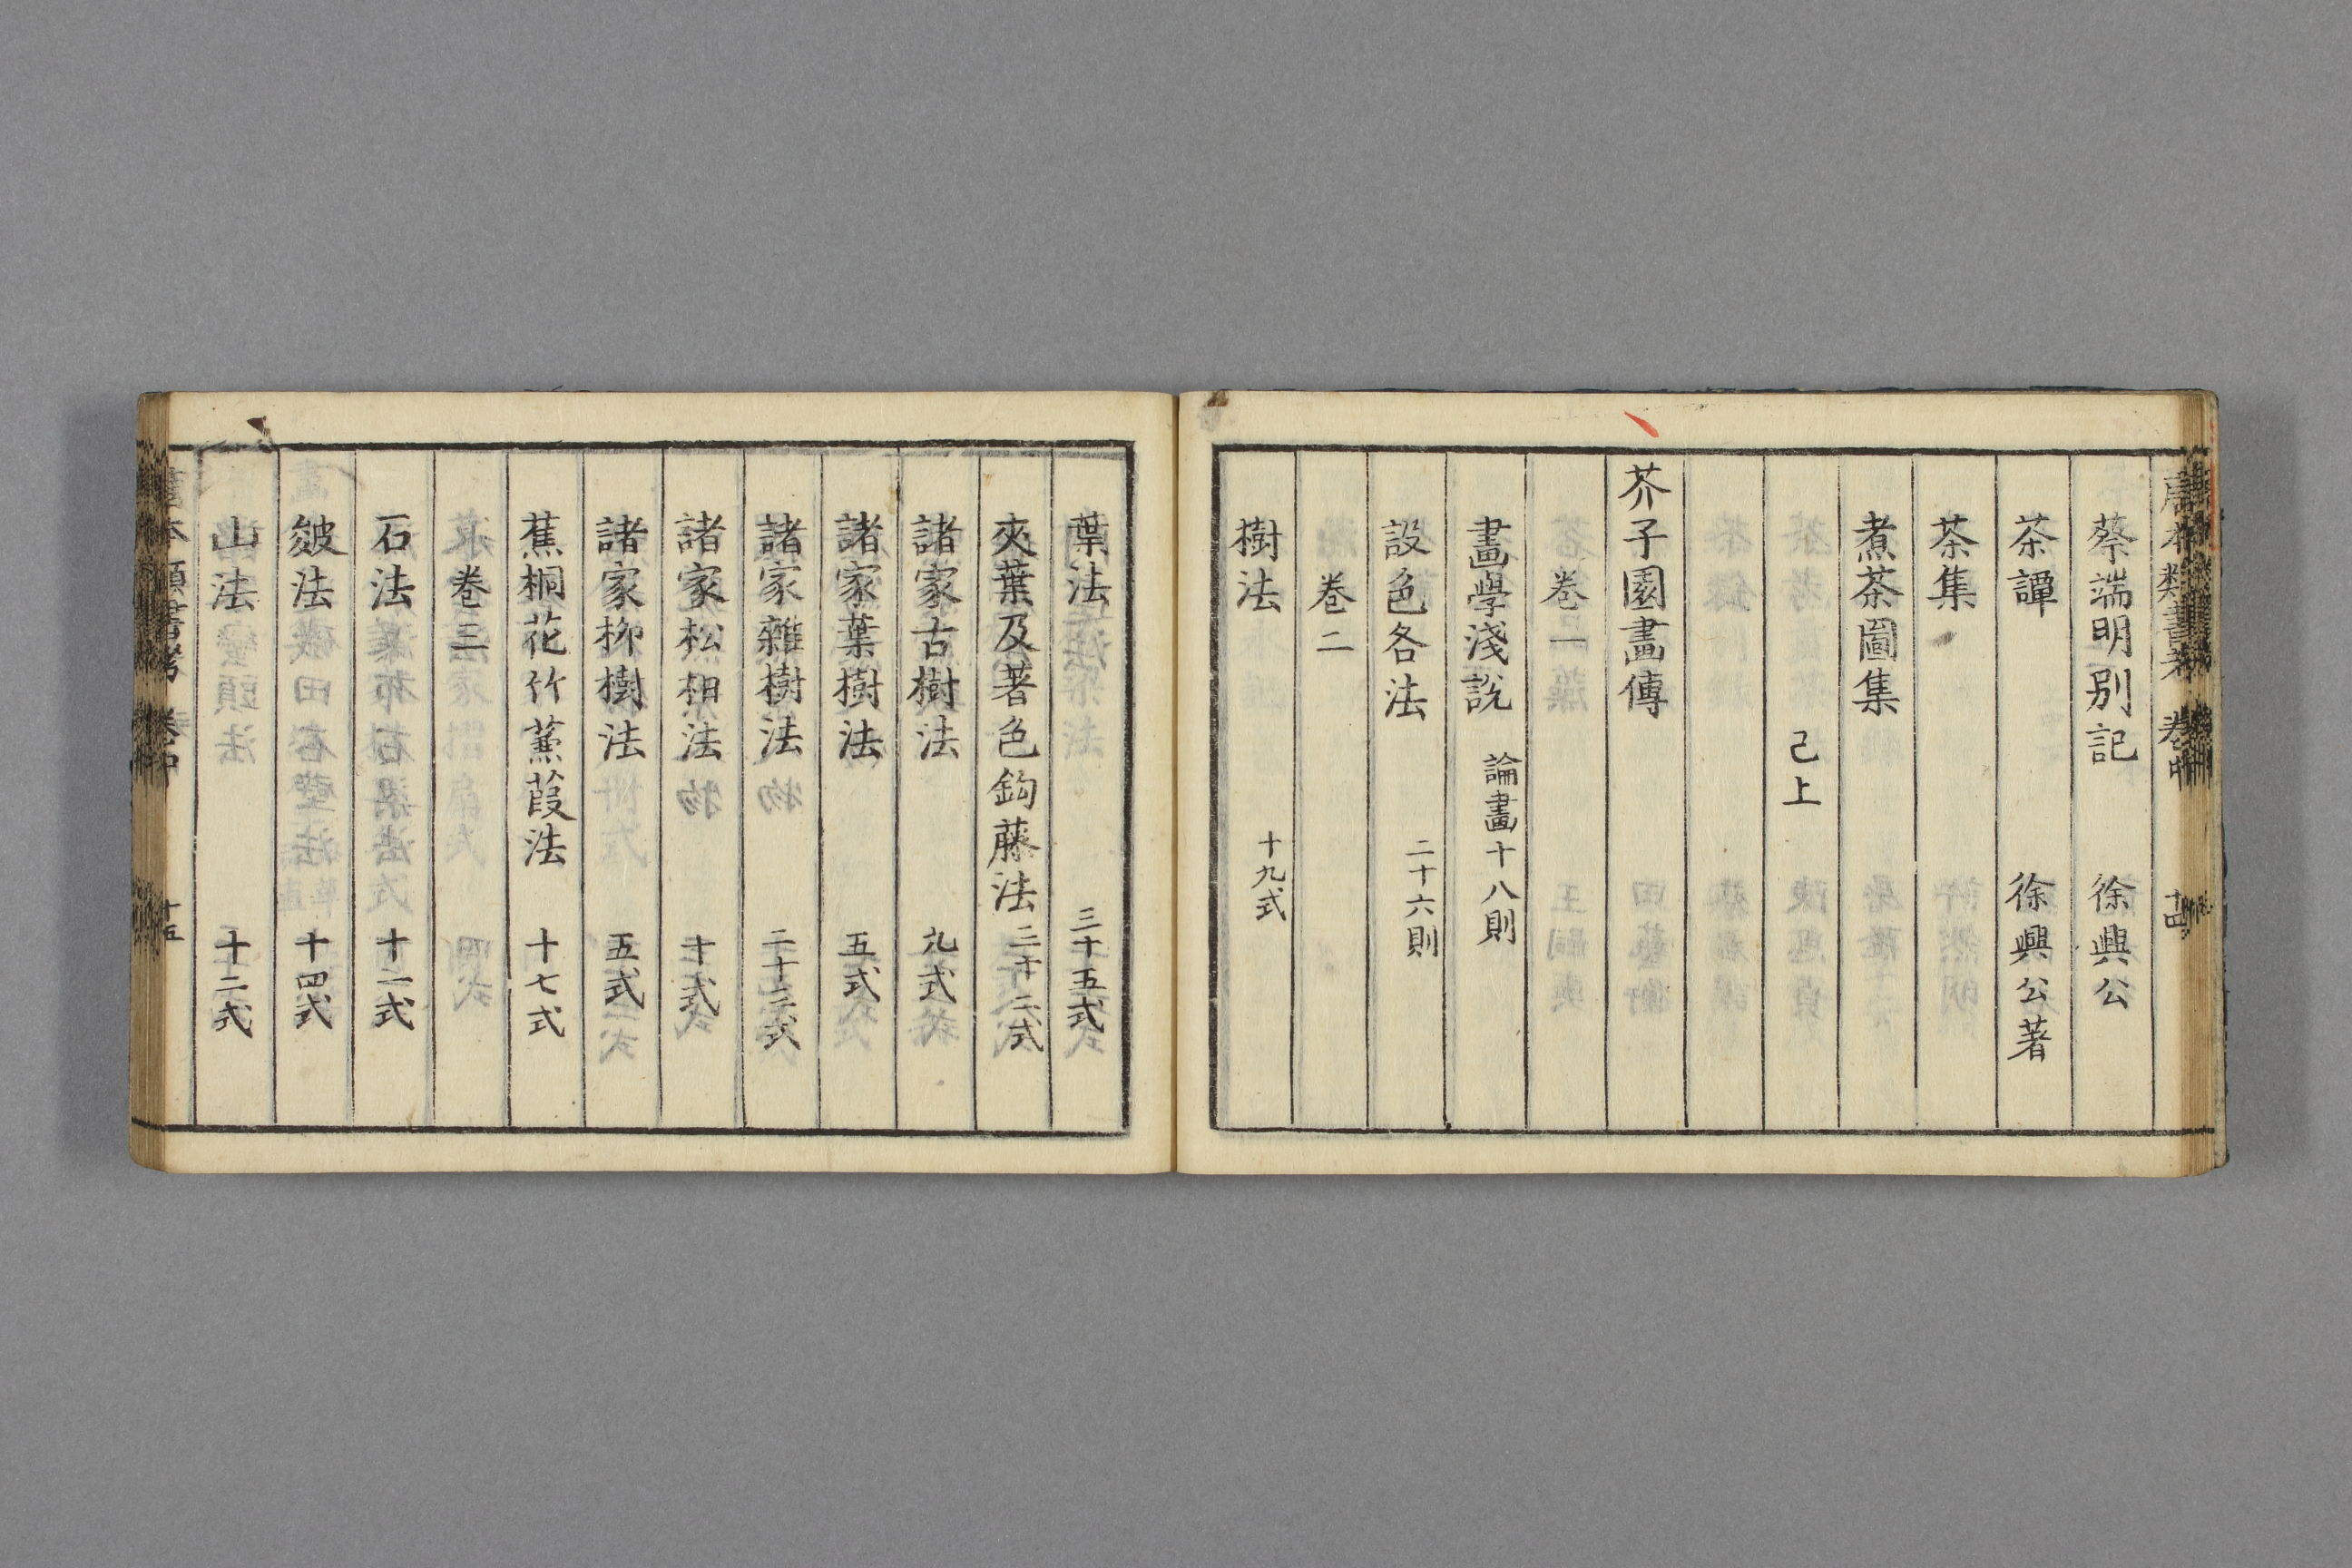 唐本類書考 卷中 十四
蔡端明別記 徐興公
茶譚 徐興公著
茶集
煮茶圖集
己上
芥子園畫傳
卷一
畫學淺説 論畫十八則
設色各法 二十六則
卷二
樹法 十九式
葉法 三十五式
夾葉及著色鈎藤法 三十二式
諸家古樹法 九式
諸家葉樹法 五式
諸家雜樹法 二十二式
諸家松柏法 十式
諸家柳樹法 五式
蕉桐花竹蒹葭法 十七式
卷三
石法 十一式
皴法 十四式
山法 十二式
唐本類書考 卷中 十五